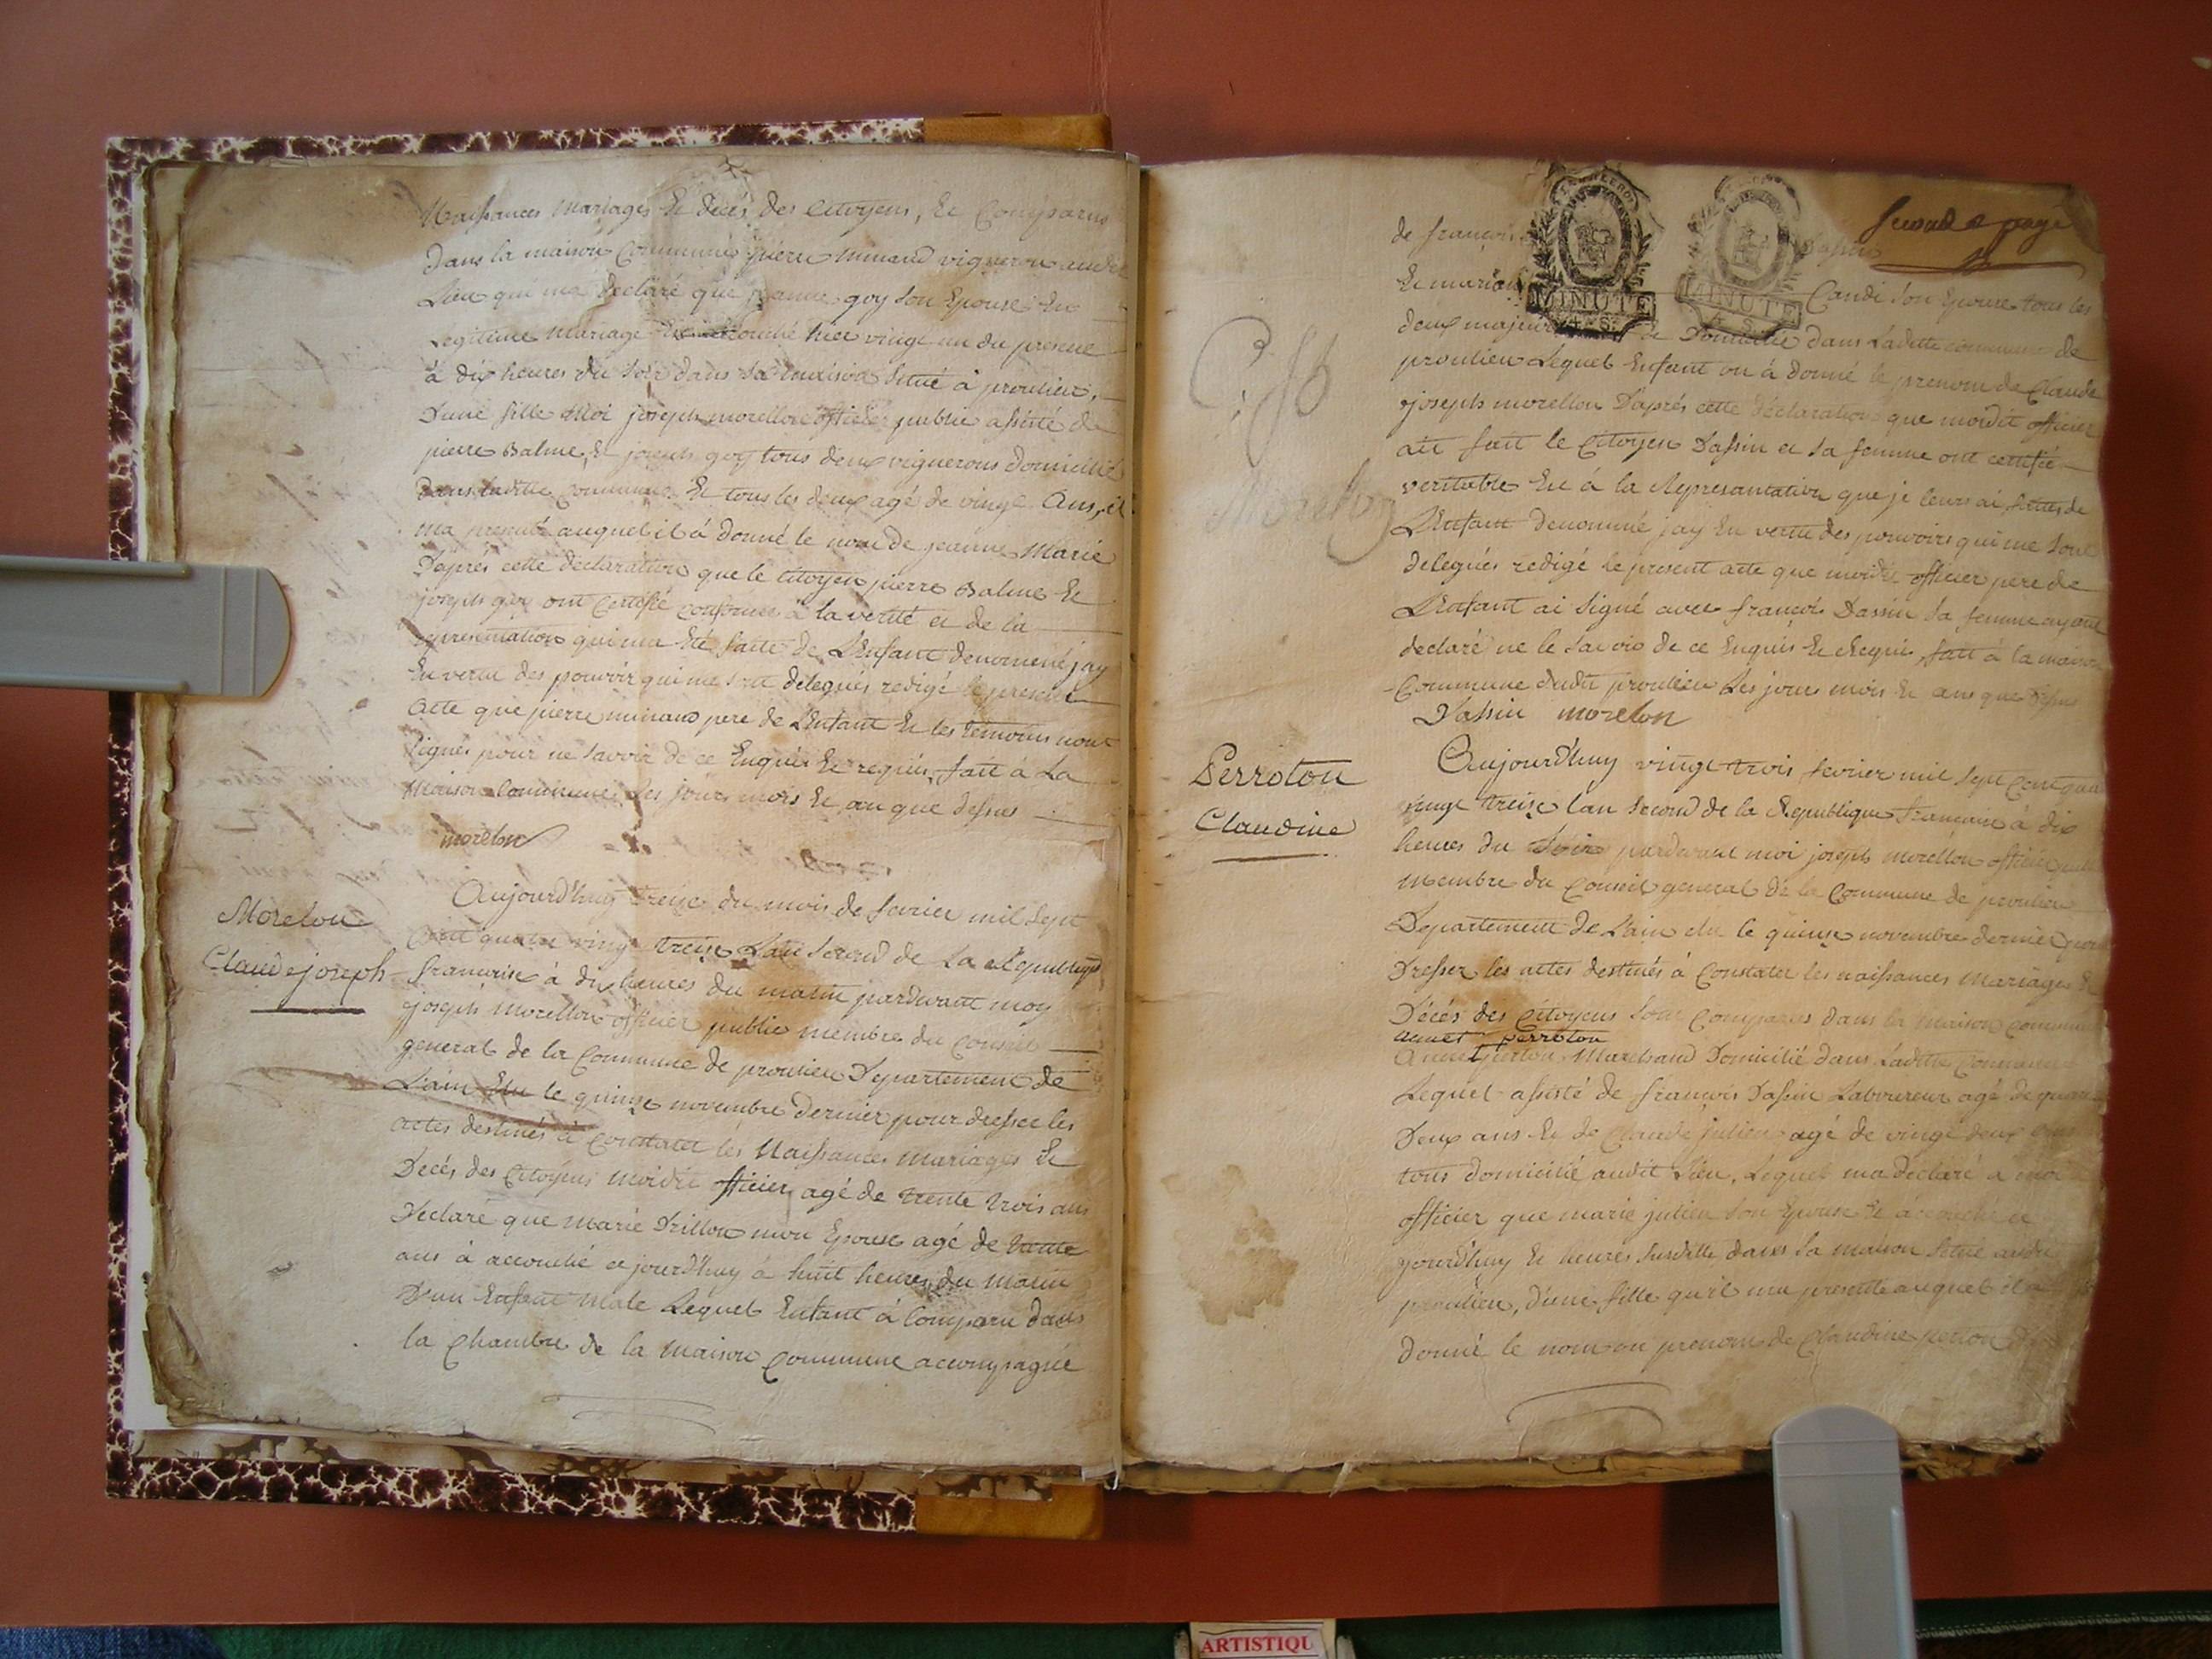 Naissances Mariages Et decés des Citoyens, Et Comparus
dans la maison Commune pierre minand vigneron audit
Lieu qui ma declaré que jeanne goy son Epouse En
Legitime Mariage accouché hier vingt un du present
à dix heures du soir dans sa maison Situé à proulieu,
Dune fille Moi joseph morellon officier public assisté de
pierre Balme, Et joseph goy tous deux vignerons domicilié
Dans ladite Commune Et tous les deux agé de vingt Ans, il
ma presenté auquel il à donné le nom de jeanne Marie
Daprés cette déclaration que le Citoyen pierre Balme Et
joseph goy ont Certifié conforme à la verité et de la
representation qui ma Eté faite de L'Enfant denommé jay
En vertu des pouvoir qui me sont delegués redigé le present
Acte que pierre minand pere de L'Enfant Et les temoins nont
Signés pour ne Savoir de ce Enquis Et requis, fait à La
Maison Commune Les jours mois Et an que dessus
morelon
Morelon
Claude joseph
Aujourd'huy treize du mois de fevrier mil Sept
Cent quatre vingt treize L'an Second de La Republique
francoise à dix heures du matin pardevant moy
joseph Morellon officier public membre du Conseil
general de la Commune de proulieu Departement de
L'ain Elu le quinze novembre dernier pour dresser les
actes destinés à Constater les Naissances Mariages Et
Decés des Citoyens moidit officier agé de trente trois ans
Declare que Marie Drillon mon Epouse agé de trente
ans à accouché ce jourd'huy à huit heures du matin
D'un Enfant Male Lequel Enfant à Comparu dans
la Chambre de la Maison Commune accompagnée
Second page
MINUTE
MINUTE
de françois Dassin
Et marie Candi Son Epouse tous les
deux majeurs Domicilié dans Ladette commune de
proulieu Lequel Enfant on à donné le prenom de Claude
joseph morellon Daprés cette déclaration que moidit officier
ait fait le Citoyen Dassin et Sa femme ont certifié
veritable Et à la Representation que je leurs ai faittes de
L'Enfant denommé jay En vertu des pouvoirs qui me Sont
delegués redigé le present acte que moidit officier pere de
L'Enfant ai Signé avec françois Dassin Sa femme ayant
declaré ne le Savoir de ce Enquis Et Requis, fait à la maison
Commune dudit proulieu Les jours mois Et ans que dessus
Dassin morelon
Perroton
Claudine
Aujourd'huy vingt trois fevrier mil Sept Cent quatre
vingt treize lan Second de la Republique francaise à dix
heures du Soir pardevant moi joseph morellon officier public
Membre du Conseil general de la Commune de proulieu
Departement de L'ain elu le quinze novembre dernier pour
Dresser les actes destinés à Constater les naissances Mariages Et
Décés des Citoyens Sont Comparus dans la Maison commune
annet perroton
Marchand Domicilié dans Ladite Commune
Lequel assisté de françois Dassin Laboureur agé de quarante
Deux ans Et de Claude julien agé de vingt deux ans
tous domicilié audit Lieu, Lequel ma déclaré a moi
officier que marie julien Son Epouse Et accouché ce
jourd'huy Et heures Susditte dans Sa maison Situé audit
proulieu, d'une fille qu'il ma presenté auquel il a
donné le nom ou prenom de Claudine
ARTISTIQU